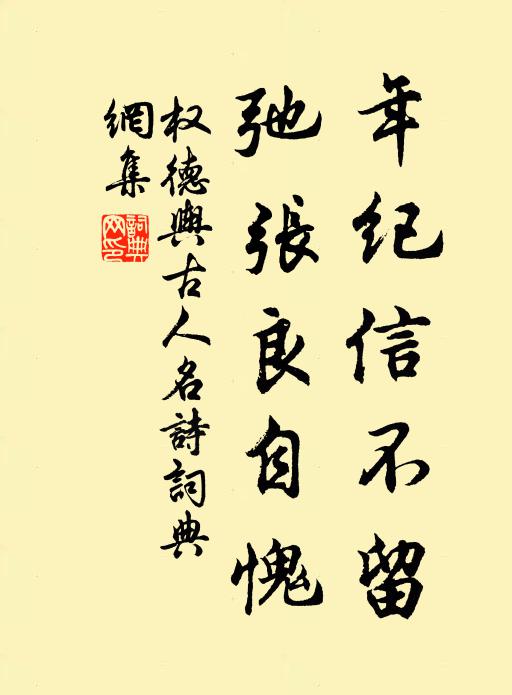 年纪信不留
弛張良自愧
权德輿古人名詩詞典
網集
詞典
网印